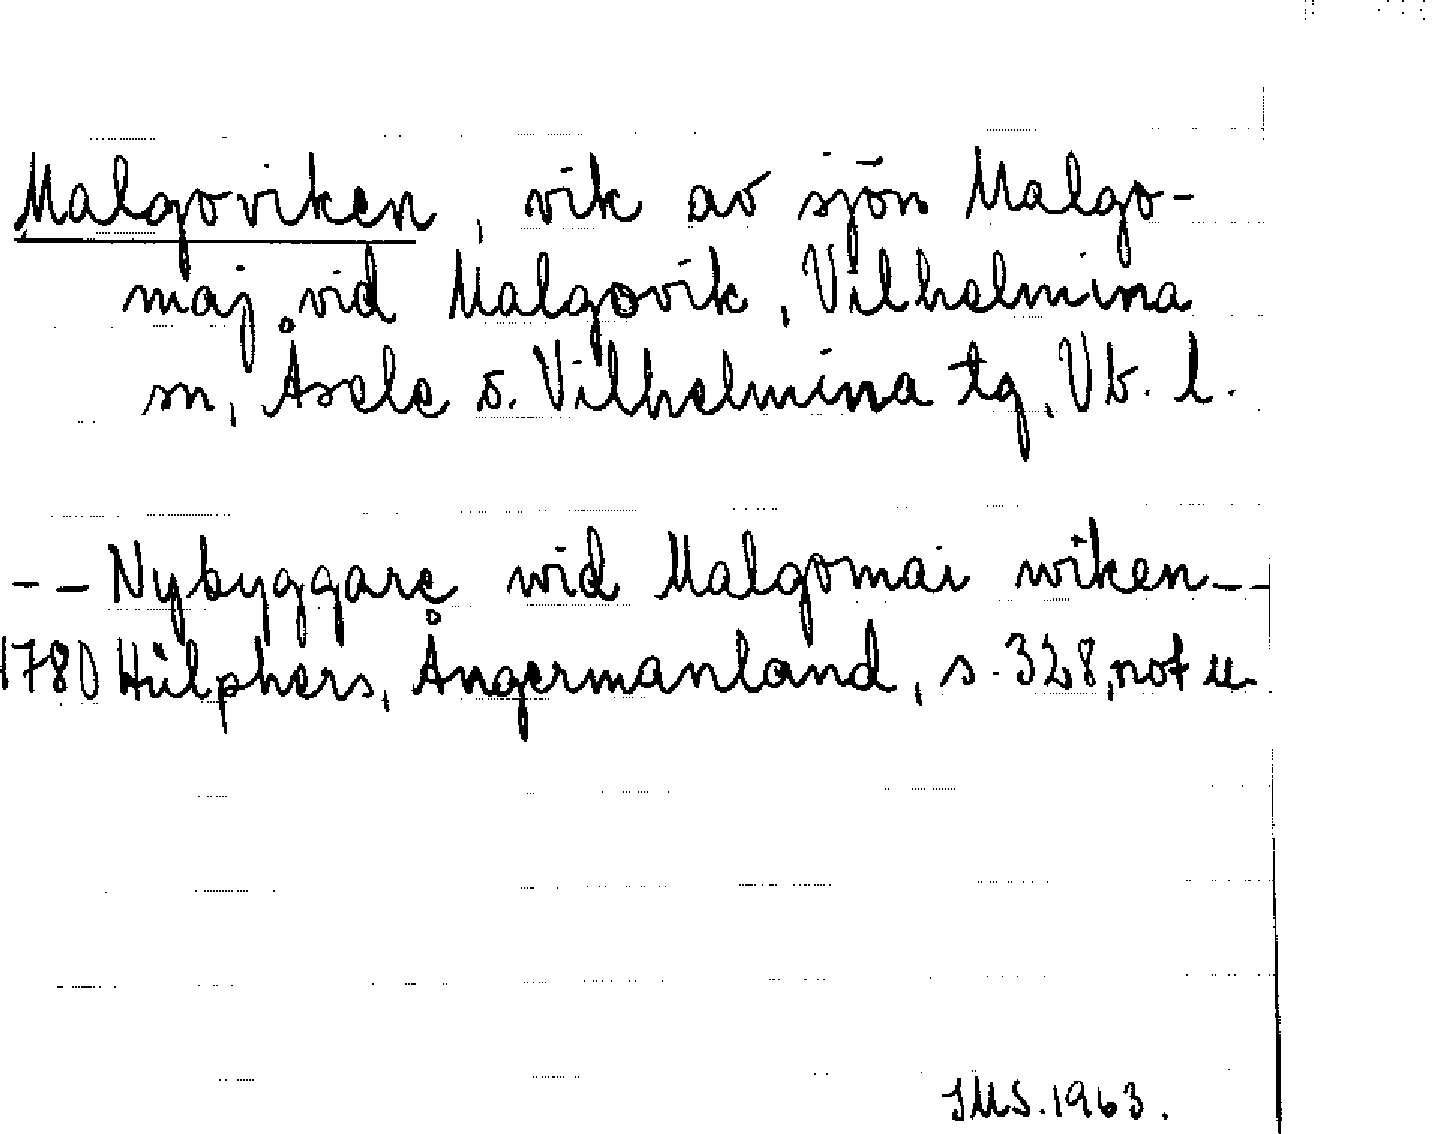 Malgoviken, vik av sjön Malgo-
maj vid Malgovik, Vilhelmina
sn, Åsele o. Vilhelmina tg, Vb. l.
-- Nybyggare wid Malgomai wiken--
1780 Hülphers, Ångermanland, s. 328, not u
JMS. 1963.